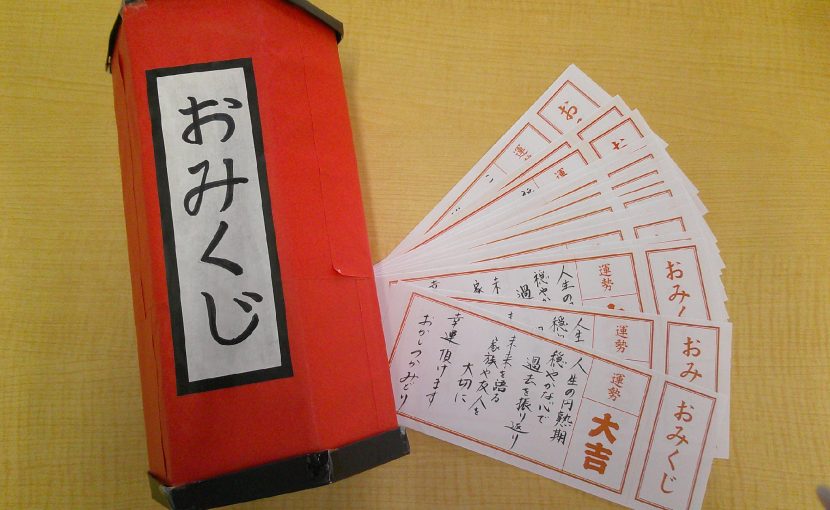 おみくじ
おみくじ
運勢
大吉
人生の円熟期
穏やかな心で
過去を振り返り
未来を語る
家族や友人を
大切に
幸運頂けます
おかしつかみどり
おみ
運勢
人生
穏
おみくじ
運勢
人生の
穏やか
過
未
家
お
運
お
運